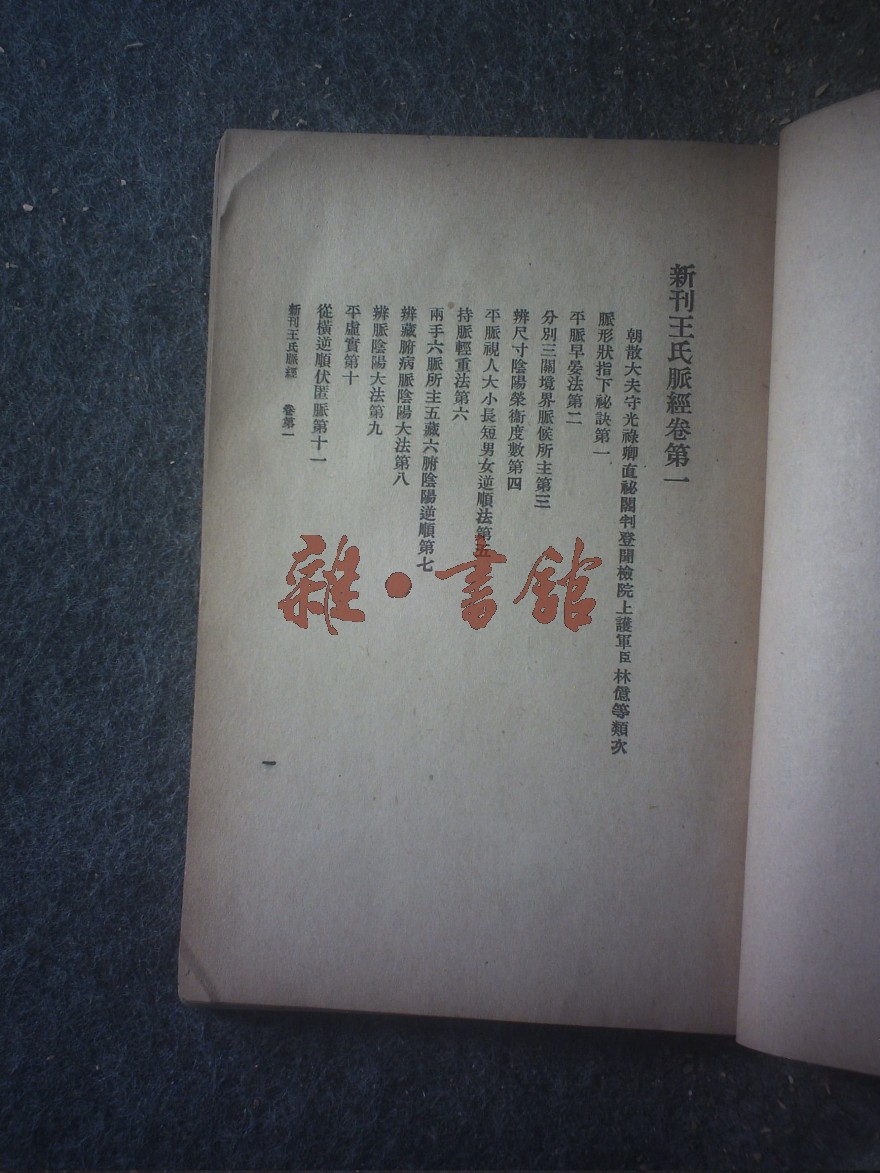 新刊王氏脈經卷第一
朝散大夫守光祿卿直祕閣判登聞檢院上護軍臣林億等類次
脈形狀指下祕訣第一
平脈早晏法第二
分別三關境界脈候所主第三
辨尺寸陰陽榮衞度數第四
平脈視人大小長短男女逆順法第五
持脈輕重法第六
兩手六脈所主五藏六腑陰陽逆順第七
辨藏腑病脈陰陽大法第八
辨脈陰陽大法第九
平虛實第十
從橫逆順伏匿脈第十一
新刊王氏脈經 卷第一
一
雜·書館